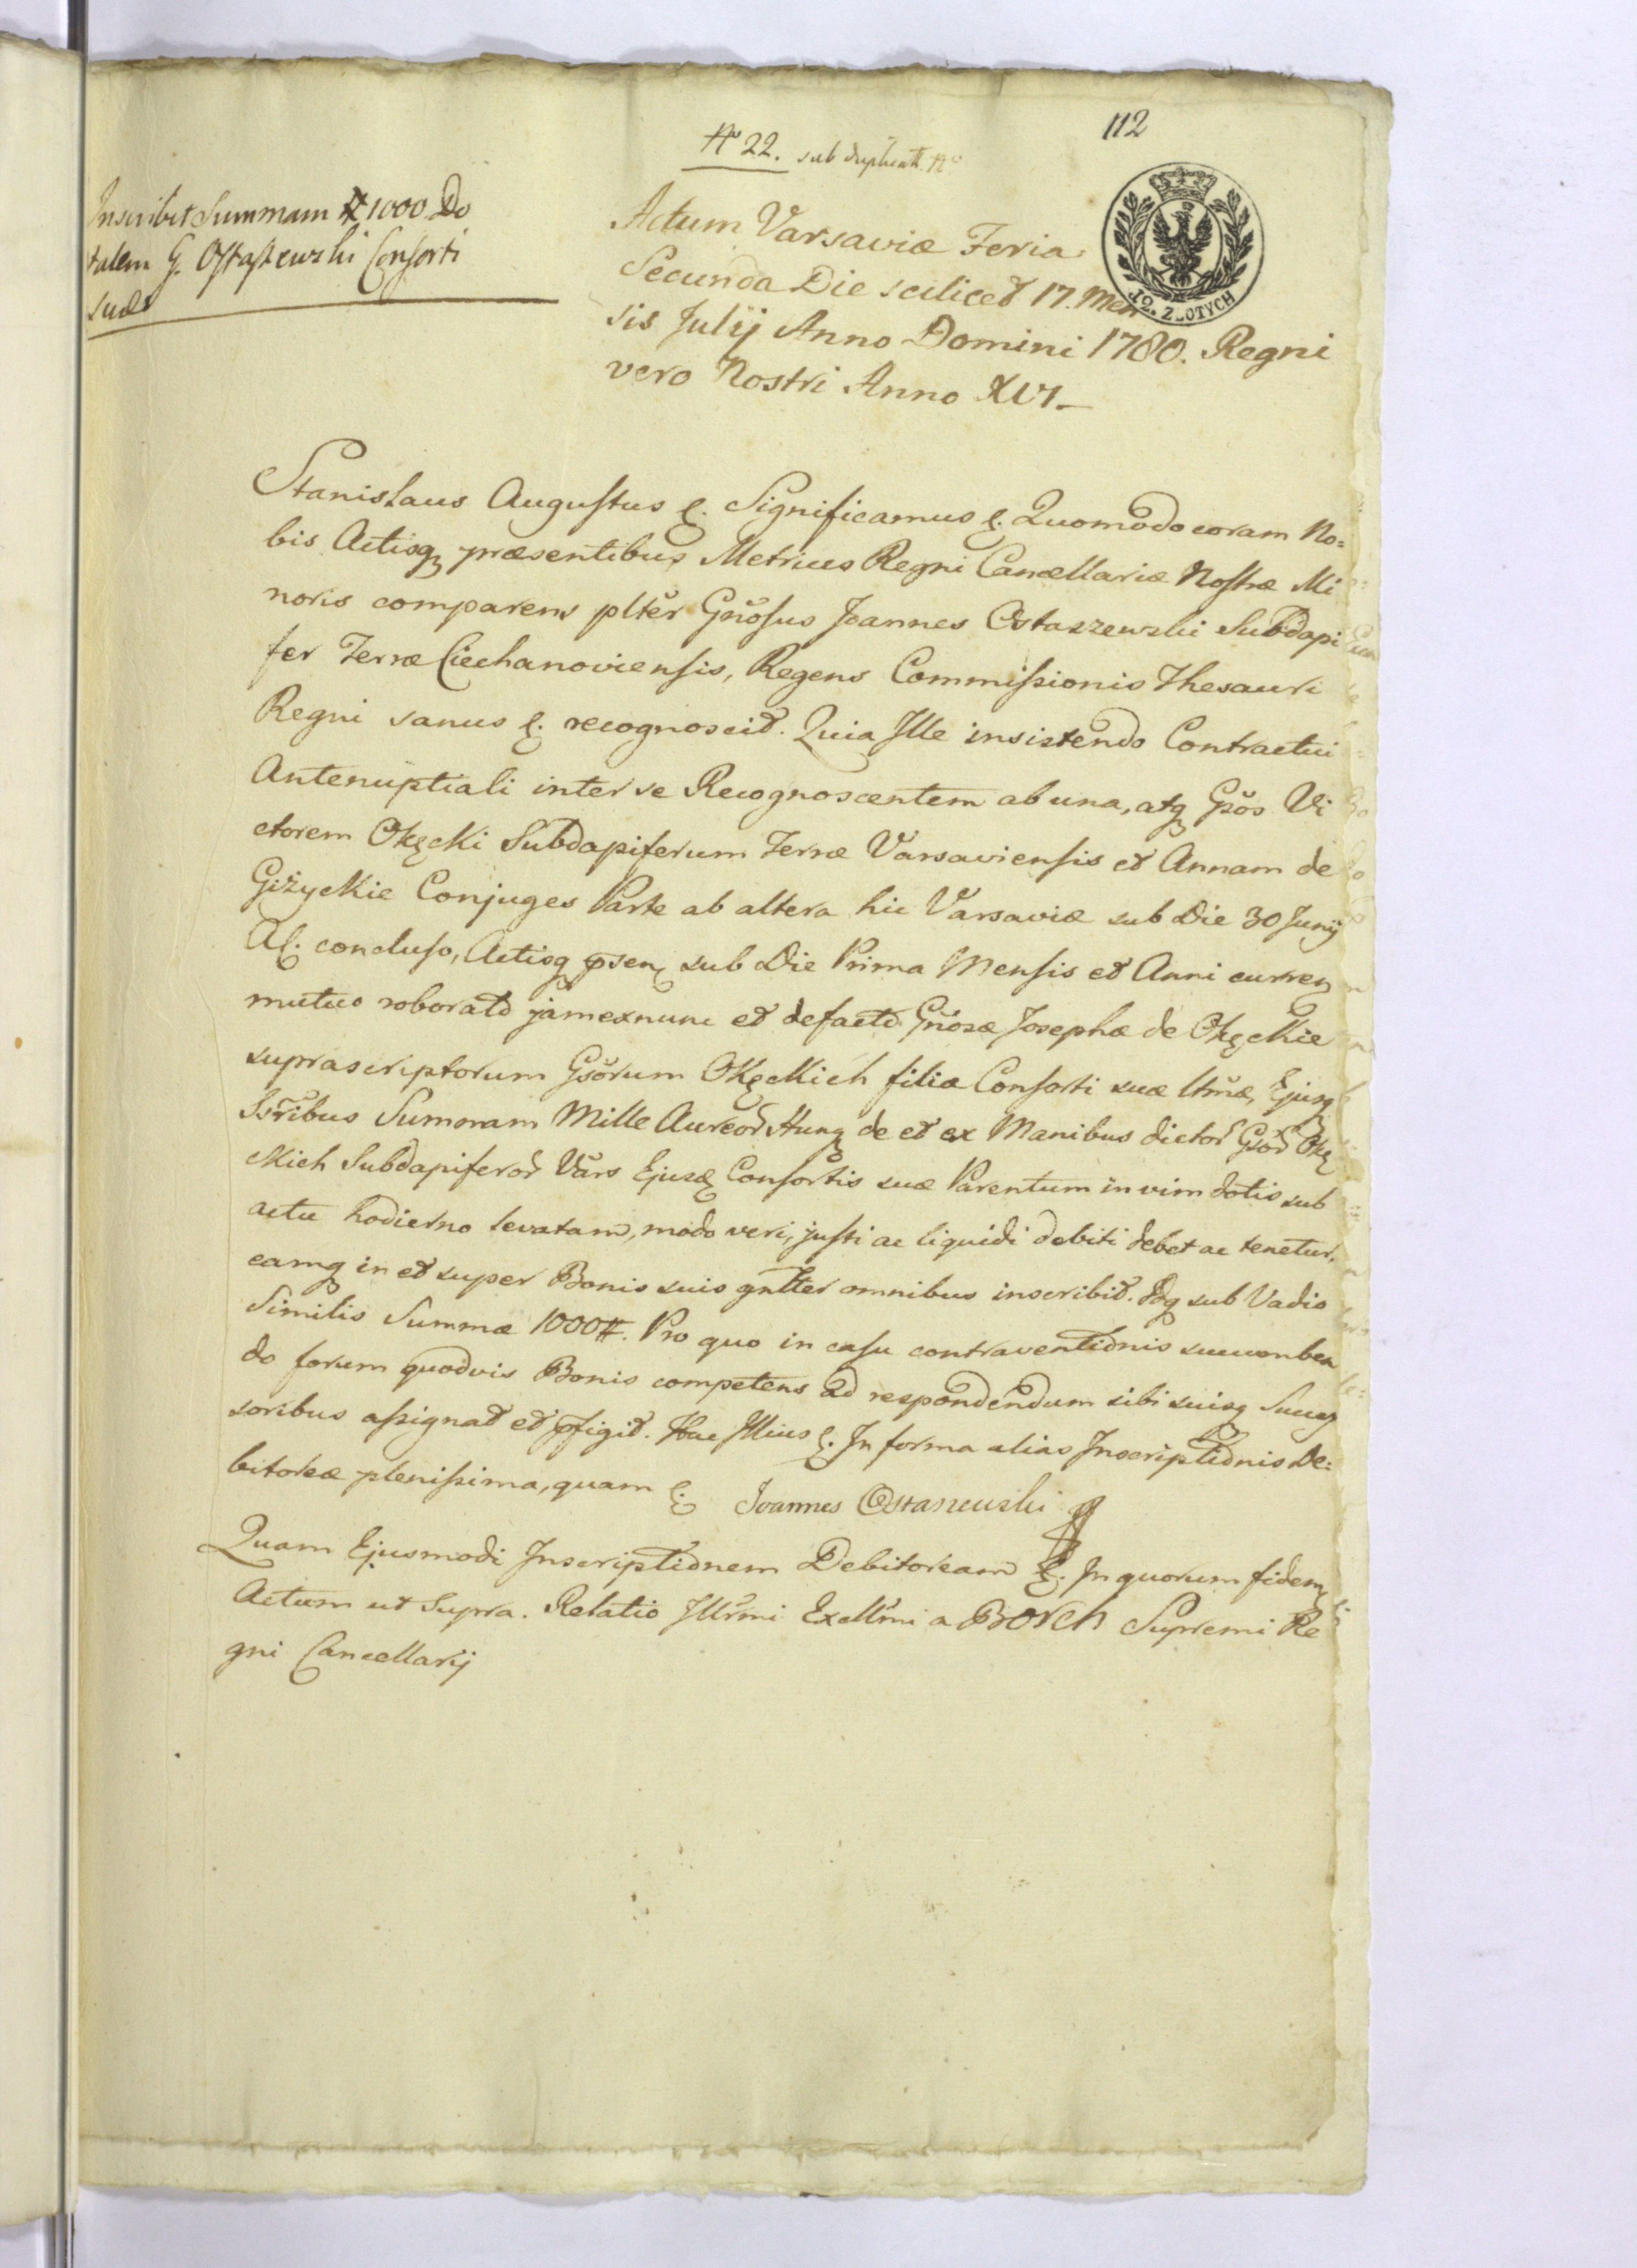 112
No 22. sub duplicat. No
Inscribit Summam # 1000 Do
talem G. Ostaszewski Consorti
suæ
12. ZŁOTYCH
Actum Varsaviæ Feria
Secunda Die scilicet 17. Men
sis Julij Anno Domini 1780. Regni
vero Nostri Anno XVI
Stanislaus Augustus &. Significamus &. Quomodo coram No=
bis Actisq præsentibus Metrices Regni Cancellariæ Nostræ Mi
noris comparens pltěr Gnosus Joannes Ostaszewski Subdapi
fer Terræ Ciechanoviensis, Regens Commissionis Thesauri
Regni sanus &. recognoscit. Quia Ille insistendo Contractui
Antenuptiali inter se Recognoscentem ab una, atq Gsos Vi
ctorem Okęcki Subdapiferum Terræ Varsaviensis et Annam de
Giżyckie Conjuges Parte ab altera hic Varsaviæ sub Die 30 Junij
A&. concluso, Actisq psen sub Die Prima Mensis et Anni curren
mutuo roborato jamexnunc et defacto Gnosæ Josephæ de Okęckie
suprascriptorum Gsorum Okęckich filiæ Consorti suæ ltmæ, Ejusq
Ssribus Summam Mille Aureor Hung de et ex Manibus dictor Gsor Okę
ckich Subdapiferor Vars Ejusq Consortis suæ Parentum in vim dotis sub
actu hodierno levatam, modo veri, justi ac liquidi debiti debet ac tenetur,
eamq in et super Bonis suis gnlter omnibus inscribit. Idq sub Vadio
Similis Summæ 1000#. Pro quo in casu contraventionis succumben
do forum quodvis Bonis competens ad respondendum sibi suisq Succes
soribus assignat et pfigit. Hac Illius &. In forma alias Inscriptionis De=
bitoreæ plenissima, quam &. Joannes Ostaszewski
Quam Ejusmodi Inscriptionem Debitoream &. In quorum fidem
Actum ut Supra. Relatio Illrmi Excllmi a Borch Supremi Re
gni Cancellarij